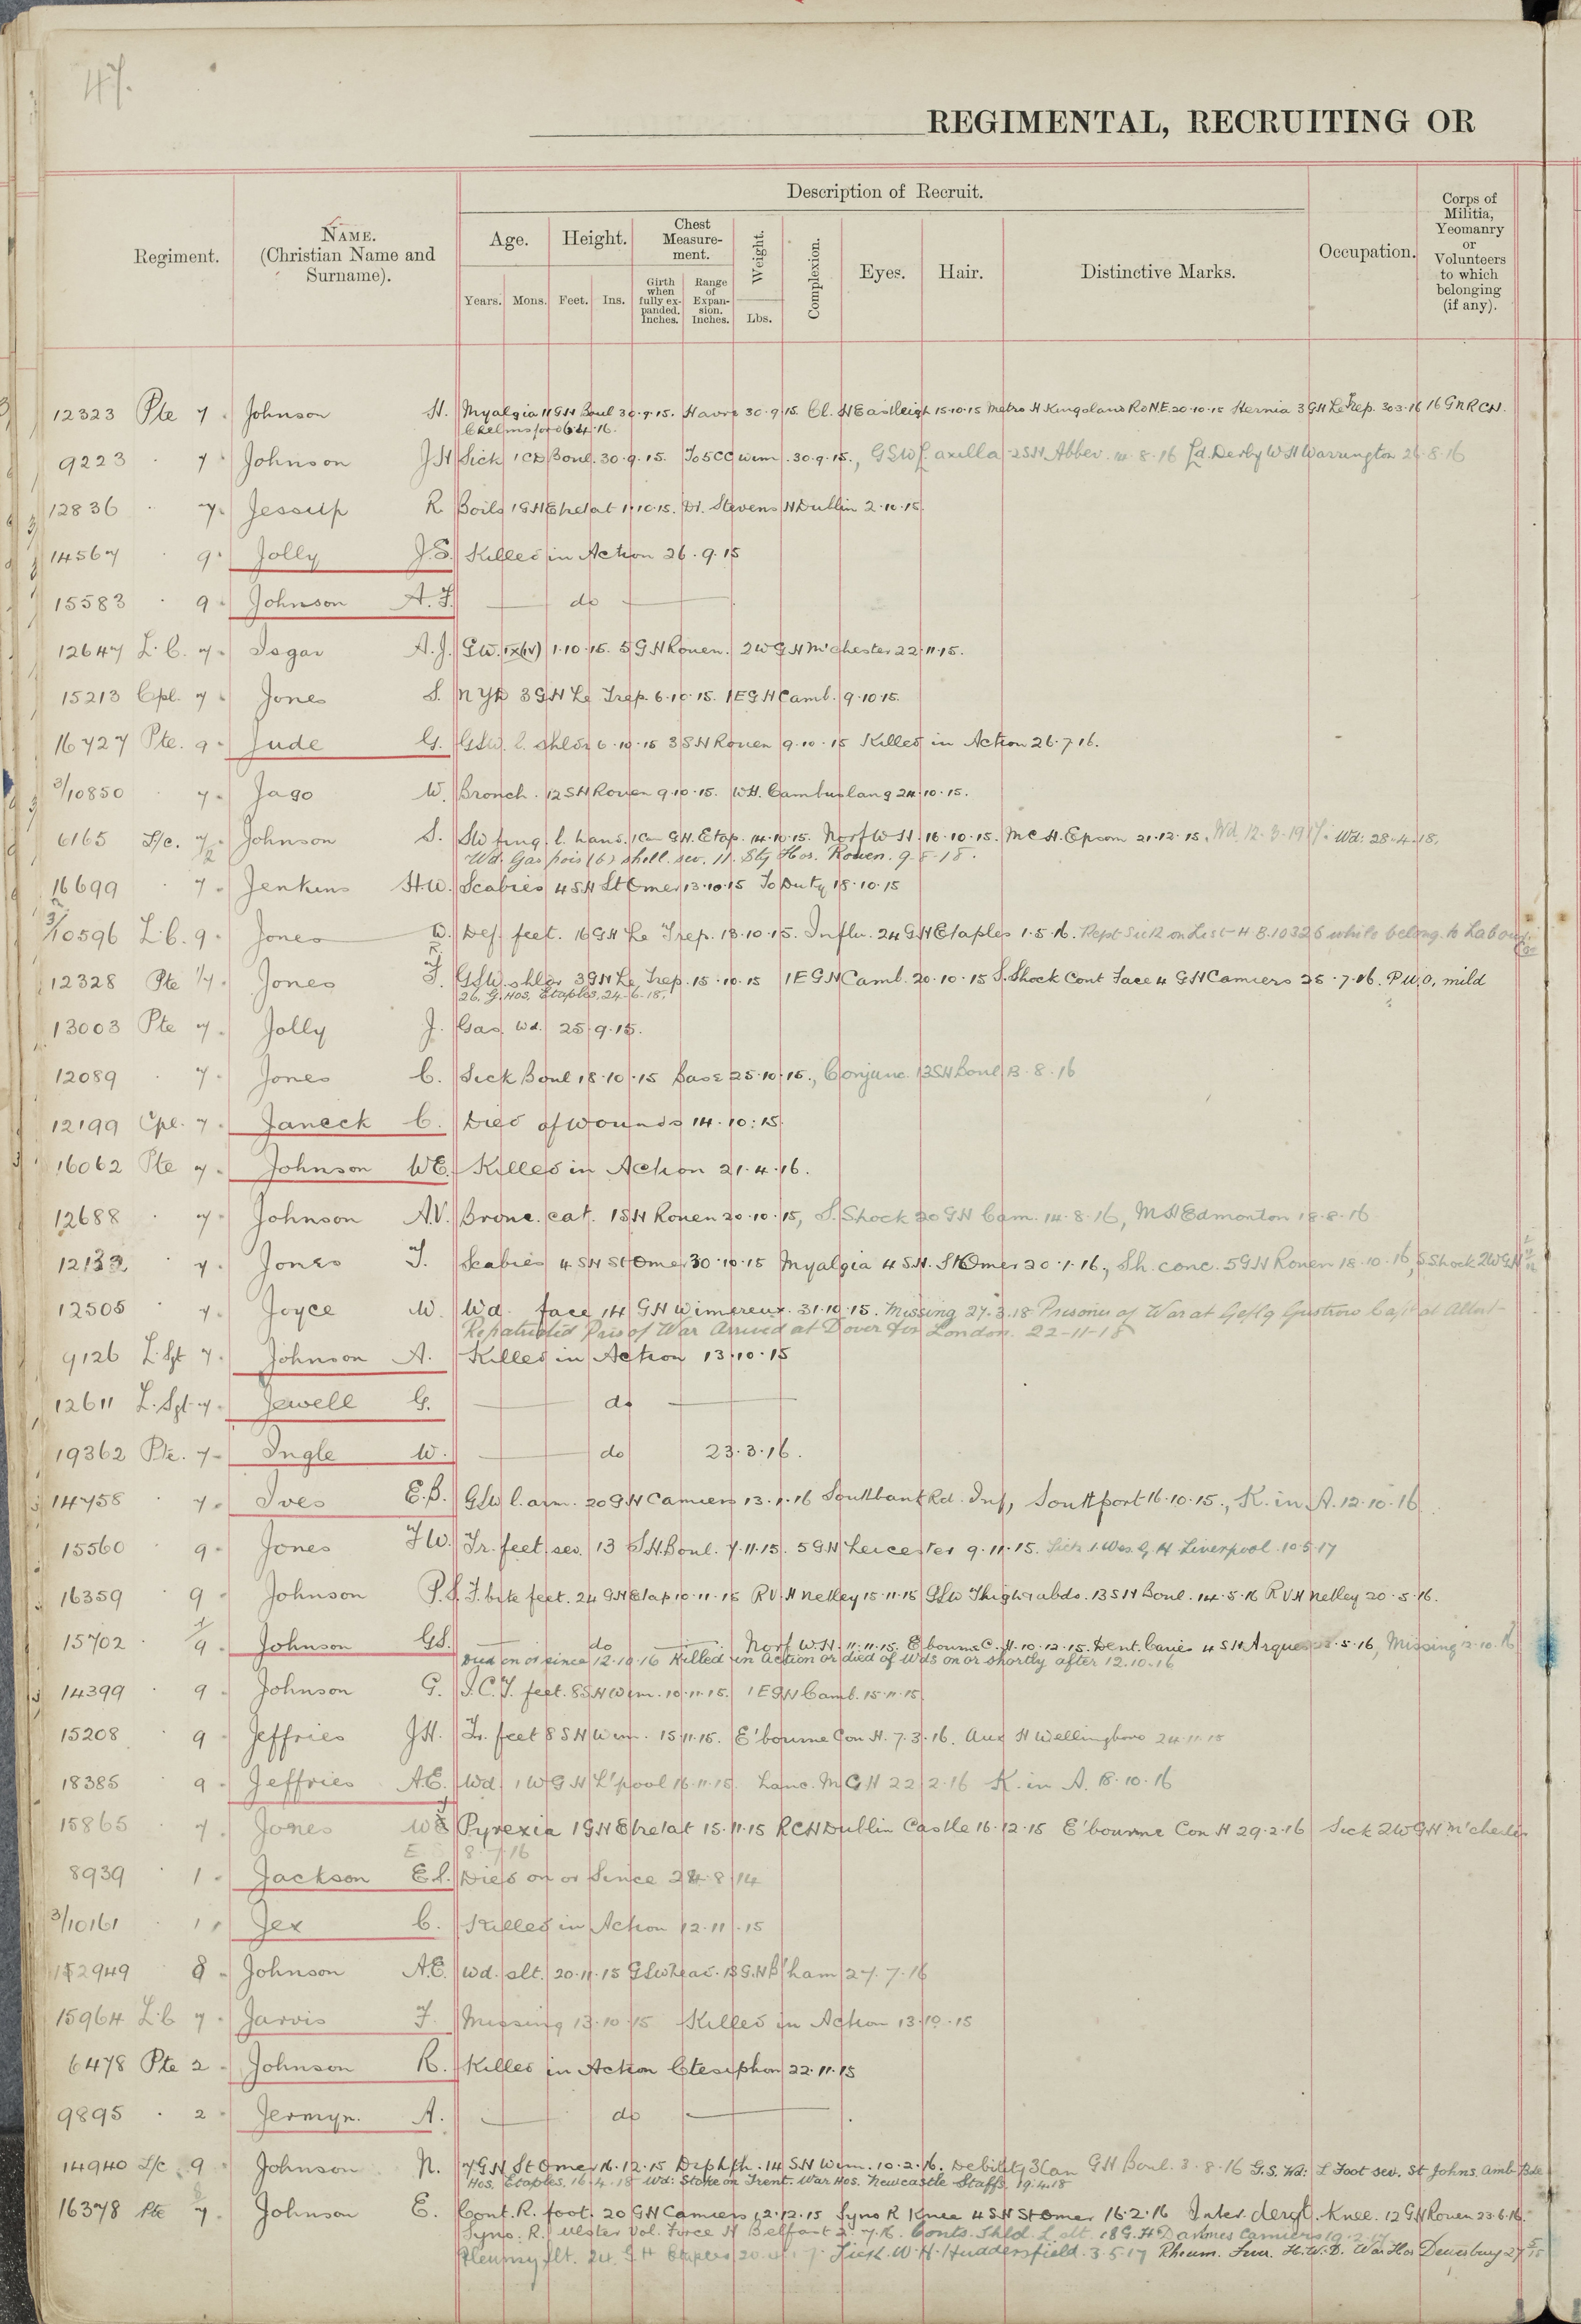 47.
REGIMENTAL, RECRUITING OR
Regiment.
NAME.
(Christian Name and
Surname).
Description of Recruit.
Age.
Height.
Chest
Measure-
ment.
Weight.
Complexion.
Eyes.
Hair.
Distinctive Marks.
Occupation.
Corps of
Militia,
Yeomanry
or
Volunteers
to which
belonging
(if any).
Years.
Mons.
Feet.
Ins.
Girth
when
fully ex-
panded.
Inches.
Range
of
Expan-
sion.
Inches.
Lbs.
12323 Pte 7 Johnson H. Myalgia 11 GH Boul 30.9.15. Havre 30.9.15 Cl. H Eastleigh 15.10.15 Metro H Kingsland Rd N.E. 20.10.15 Hernia 3 GH Le Trep. 30.3.16 16 Gn R C H.
Chelmsford 6.4.16.
9223 · 7 Johnson J.H Sick 1 CD Boul. 30.9.15. To 5 CC Wim. 30.9.15., GSW l. axilla 2 SH Abbev. 14.8.16 Ld. Derby W H Warrington 26.8.16
12836 · 7. Jessup R Boils 1 GH Etretat 1.10.15. Dr. Stevens H Dublin 2.10.15.
14567 · 9 Jolly J.S. Killed in Action 26.9.15
15583 · 9 Johnson A.F. do
12647 L.C. 7 Isgar A.J. G.W. IX (iv) 1.10.15. 5 G H Rouen. 2 W G H M'chester 22.11.15.
15213 Cpl. 7 Jones S. N Y D 3 G H Le Trep. 6.10.15. 1 E G H Camb. 9.10.15.
16727 Pte. 9 Jude G. GSW. l. shldr 6.10.15 3 S H Rouen 9.10.15 Killed in Action 26.7.16.
3/10850 · 7 Jago W. Bronch. 12 S H Rouen 9.10.15. W H. Cambuslang 24.10.15.
6165 L/c. 7/2 Johnson S. SW fing. l. hand. 1 Can G H. Etap. 14.10.15. Norf W H. 16.10.15. M C H. Epsom 21.12.15. Wd. 12.3.1917. Wd: 28.4.18.
Wd. Gas pois (b) shell. sev. 11. Sty Hos. Rouen. 9-5-18.
16699 · 7 Jenkins H.W. Scabies 4 S H St Omer 13.10.15 To Duty 18.10.15
3/10596 L.C. 9 Jones W. Def. feet. 16 G H Le Trep. 18.10.15. Influ. 24 G H Etaples 1.5.16. Rept Sick on List H B.10326 while belong. to Labour Co
12328 Pte 1/7 Jones F. GSW. shldr 3 G H Le Trep. 15.10.15 1 E G H Camb. 20.10.15 S. Shock Cont Face 4 G H Camiers 25.7.16. P.U.O, mild
26. G. Hos. Etaples. 24-6-18.
13003 Pte 7 Jolly J. Gas. Wd. 25.9.15.
12089 · 7 Jones C. Sick Boul 18.10.15 Base 25.10.15., Conjunc. 13 SH Boul 13.8.16
12199 Cpl. 7 Janeck C. Died of Wounds 14.10.15.
16062 Pte 7 Johnson W E. Killed in Action 21.4.16.
12688 · 7 Johnson A.V. Bronc. cat. 1 S H Rouen 20.10.15, S. Shock 20 G H Cam. 14.8.16, M H Edmonton 18.8.16
12132 · 7 Jones T. Scabies 4 S H St Omer 30.10.15 Myalgia 4 S H. St Omer 20.1.16., Sh. conc. 5 G H Rouen 18.10.16, S Shock 2 W G H
12505 · 7 Joyce W. Wd. face 14 G H Wimereux. 31.10.15. Missing 27.3.18 Prisoner of War at Geflg Gustrow Cap'd at Albert
Repatriated Pris of War Arrived at Dover for London. 22-11-18
9126 L.Sgt 7 Johnson A. Killed in Action 13.10.15
12611 L.Sgt 7 Jewell G. do
19362 Pte. 7 Ingle W. do 23.3.16.
14758 · 7 Ives E.B. GSW l. arm. 20 G H Camiers 13.1.16 Southbank Rd. Inf, Southport 16.10.15., K. in A. 12.10.16
15560 · 9 Jones F W. Tr. feet. sev. 13 S.H. Boul. 7.11.15. 5 G H Leicester 9.11.15. Sick 1. Wes. G. H. Liverpool. 10.5.17
16359 9 Johnson P.S. F. bite feet. 24 G H Etap 10.11.15 R V. H Netley 15.11.15 GSW Thigh & abdo. 13 S H Boul. 14.5.16 R V H Netley 20.5.16.
15702 · 7/9 Johnson G S. do Norf W. H. 11.11.15. E'bourne C. H. 10.12.15. Dent. Caries 4 S H Arques 25.5.16, Missing 12.10.16
Died on or since 12.10.16 Killed in action or died of wds on or shortly after 12.10.16
14399 · 9 Johnson G. I.C.T. feet. 8 S H Wim. 10.11.15. 1 E G H Camb. 15.11.15.
15208 9 Jeffries J H. Tr. feet 8 S H Wim. 15.11.15. E'bourne Con H. 7.3.16. Aux H Wellingboro 24.11.15
18385 9 Jeffries A.E. Wd. 1 W G H L'pool 16.11.15. Lanc. M C H 22.2.16 K. in A. 18.10.16
15865 · 7. Jones W E Pyrexia 1 G H Etretat 15.11.15 R C H Dublin Castle 16.12.15 E'bourne Con H 29.2.16 Sick 2 W G H M'chester
8.7.16
8939 1 Jackson E.S. Died on or Since 24.8.14
3/10161 · 1 Jex C. Killed in Action 12.11.15
12949 8 Johnson A.E. Wd. slt. 20.11.15 GSW head. 13 G.H B'ham 27.7.16
15964 L.C 7 Jarvis F. Missing 13.10.15 Killed in Action 13.10.15
6478 Pte 2 Johnson R. Killed in Action Ctesiphon 22.11.15
9895 · 2 Jermyn. A. do
14940 L/c 9 Johnson N. 7 G H St Omer 16.12.15 Diphth. 14 S H Wim. 10.2.16. Debility 3 Can G H Boul. 3.8.16 G.S. Wd: L Foot sev. St Johns. Amb Bde
Hos. Etaples. 16.4.18 Wd: Stoke on Trent. War Hos. Newcastle Staffs. 19.4.18
16378 Pte 7 Johnson E. Cont. R. foot. 20 G H Camiers 12.12.15 Syno R Knee 4 S H St Omer 16.2.16 Inter. dergt. Knee. 12 G H Rouen 23.6.16.
Syno. R. Ulster Vol. Force H Belfast 2.7.16. Conts. Shld. L slt. 18 G. H Dannes Camiers 19.2.17
Pleurisy slt. 24. G H Etaples 20.4.17. Sick. W. H. Huddersfield. 3.5.17 Rheum. Fever. H.W.D. War Hos Dewsbury 27